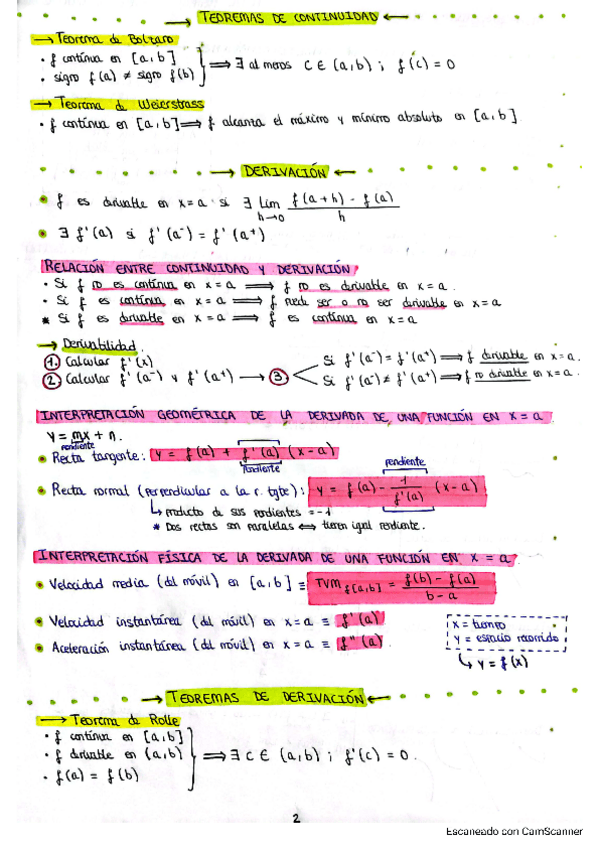 TEOREMAS DE CONTINUIDAD
→ Teorema de Bolzano
• f contínua en [a,b]
• signo f(a) ≠ signo f(b)
⟹ ∃ al menos c ∈ (a,b) ; f(c) = 0
→ Teorema de Weierstrass
• f contínua en [a,b] ⟹ f alcanza el máximo y mínimo absoluto en [a,b].
→ DERIVACIÓN ←
• f es derivable en x=a si ∃ lim h→0 f(a+h) - f(a) / h
• ∃ f'(a) si f'(a⁻) = f'(a⁺)
RELACIÓN ENTRE CONTINUIDAD Y DERIVACIÓN
• Si f no es contínua en x=a ⟹ f no es derivable en x=a.
• Si f es contínua en x=a ⟹ f puede ser o no ser derivable en x=a
* Si f es derivable en x=a ⟹ f es contínua en x=a
→ Derivabilidad.
1. Calcular f'(x)
2. Calcular f'(a⁻) y f'(a⁺) → 3.
Si f'(a⁻) = f'(a⁺) ⟹ f derivable en x=a.
Si f'(a⁻) ≠ f'(a⁺) ⟹ f no derivable en x=a.
INTERPRETACIÓN GEOMÉTRICA DE LA DERIVADA DE UNA FUNCIÓN EN X = a
y = mx + n.
pendiente
• Recta tangente: y = f(a) + f'(a) (x-a)
pendiente
pendiente
• Recta normal (perpendicular a la r. tgte): y = f(a) - 1/f'(a) (x-a)
↳ producto de sus pendientes = -1
* Dos rectas son paralelas ⟺ tienen igual pendiente.
INTERPRETACIÓN FÍSICA DE LA DERIVADA DE UNA FUNCIÓN EN X = a
• Velocidad media (del móvil) en [a,b] ≡ TVM f[a,b] = f(b) - f(a) / b - a
• Velocidad instantánea (del móvil) en x=a ≡ f'(a)
• Aceleración instantánea (del móvil) en x=a ≡ f"(a)
x = tiempo
y = espacio recorrido
↳ y = f(x)
→ TEOREMAS DE DERIVACIÓN ←
→ Teorema de Rolle
• f contínua en [a,b]
• f derivable en (a,b)
• f(a) = f(b)
⟹ ∃ c ∈ (a,b) ; f'(c) = 0.
2
Escaneado con CamScanner